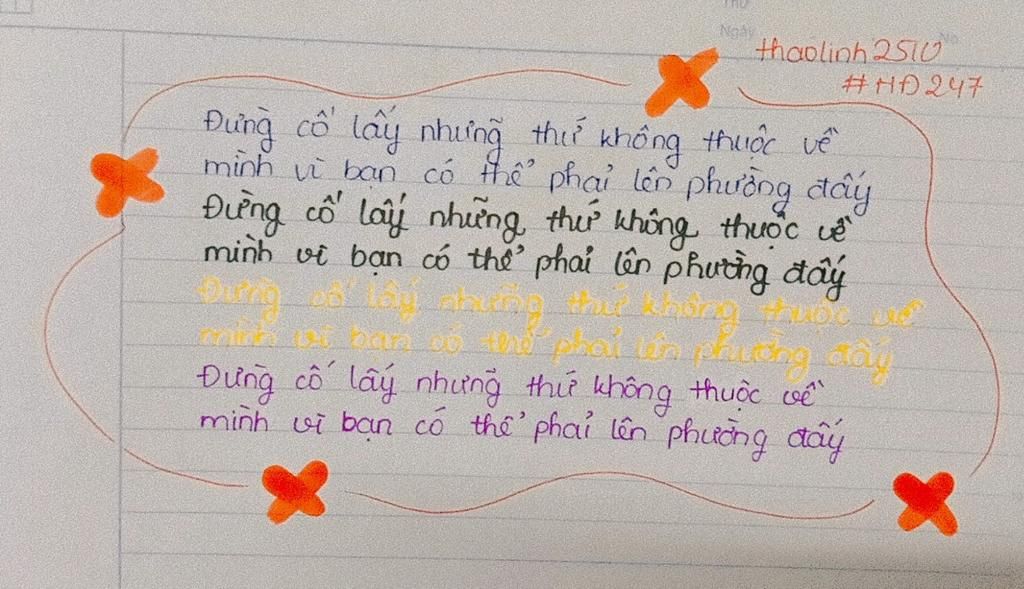 Thứ
Ngày No
thaolinh2510
#HĐ247
Đừng cố lấy những thứ không thuộc về
mình vì bạn có thể phải lên phường đấy
Đừng cố lấy những thứ không thuộc về
mình vì bạn có thể phải lên phường đấy
Đừng cố lấy những thứ không thuộc về
mình vì bạn có thể phải lên phường đấy
Đừng cố lấy những thứ không thuộc về
mình vì bạn có thể phải lên phường đấy